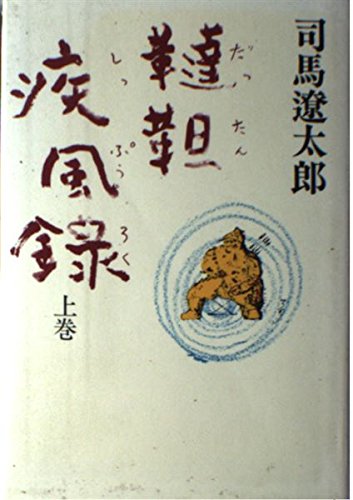 司馬遼太郎
韃靼
だったん
疾風録
しっぷうろく
上巻